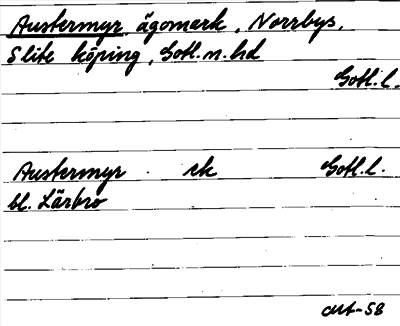 Austermyr ägomark, Norrbys,
Slite köping, Gotl.n.hd
Gotl.l.
Austermyr . ek Gotl.l.
bl. Lärbro
-58